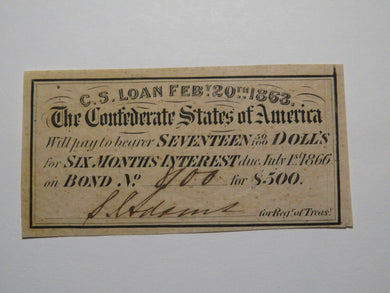 C. S. LOAN FEBY. 20TH 1863.
The Confederate States of America
Will pay to bearer SEVENTEEN 50/100 DOLL'S
for SIX MONTHS INTEREST due July 1st 1866
on BOND No. 800 for $500.
for Regr. of Treasy.